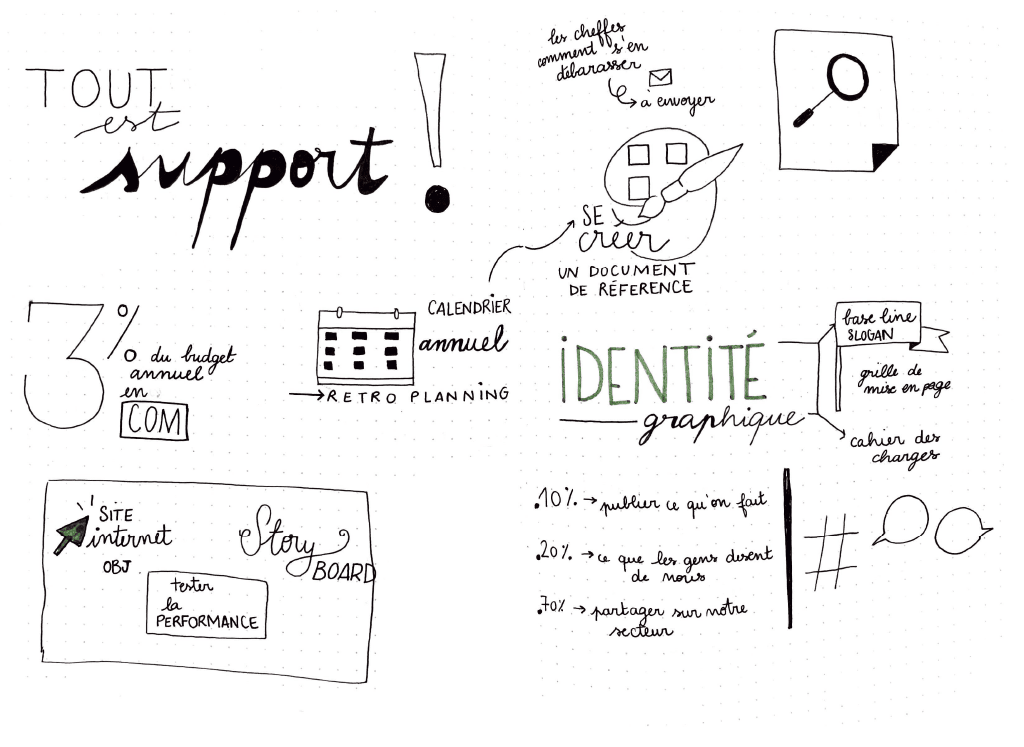 TOUT
est
support !
les cheffes
comment s'en
débarasser
à envoyer
SE
créer
UN DOCUMENT
DE RÉFERENCE
3%
du budget
annuel
en
COM
CALENDRIER
annuel
RETRO PLANNING
iDENTiTÉ
graphique
base line
SLOGAN
grille de
mise en page
cahier des
charges
SITE
internet
OBJ
Story
BOARD
tester
la
PERFORMANCE
.10% → publier ce qu'on fait
.20% → ce que les gens disent
de nous
.70% → partager sur notre
secteur
#